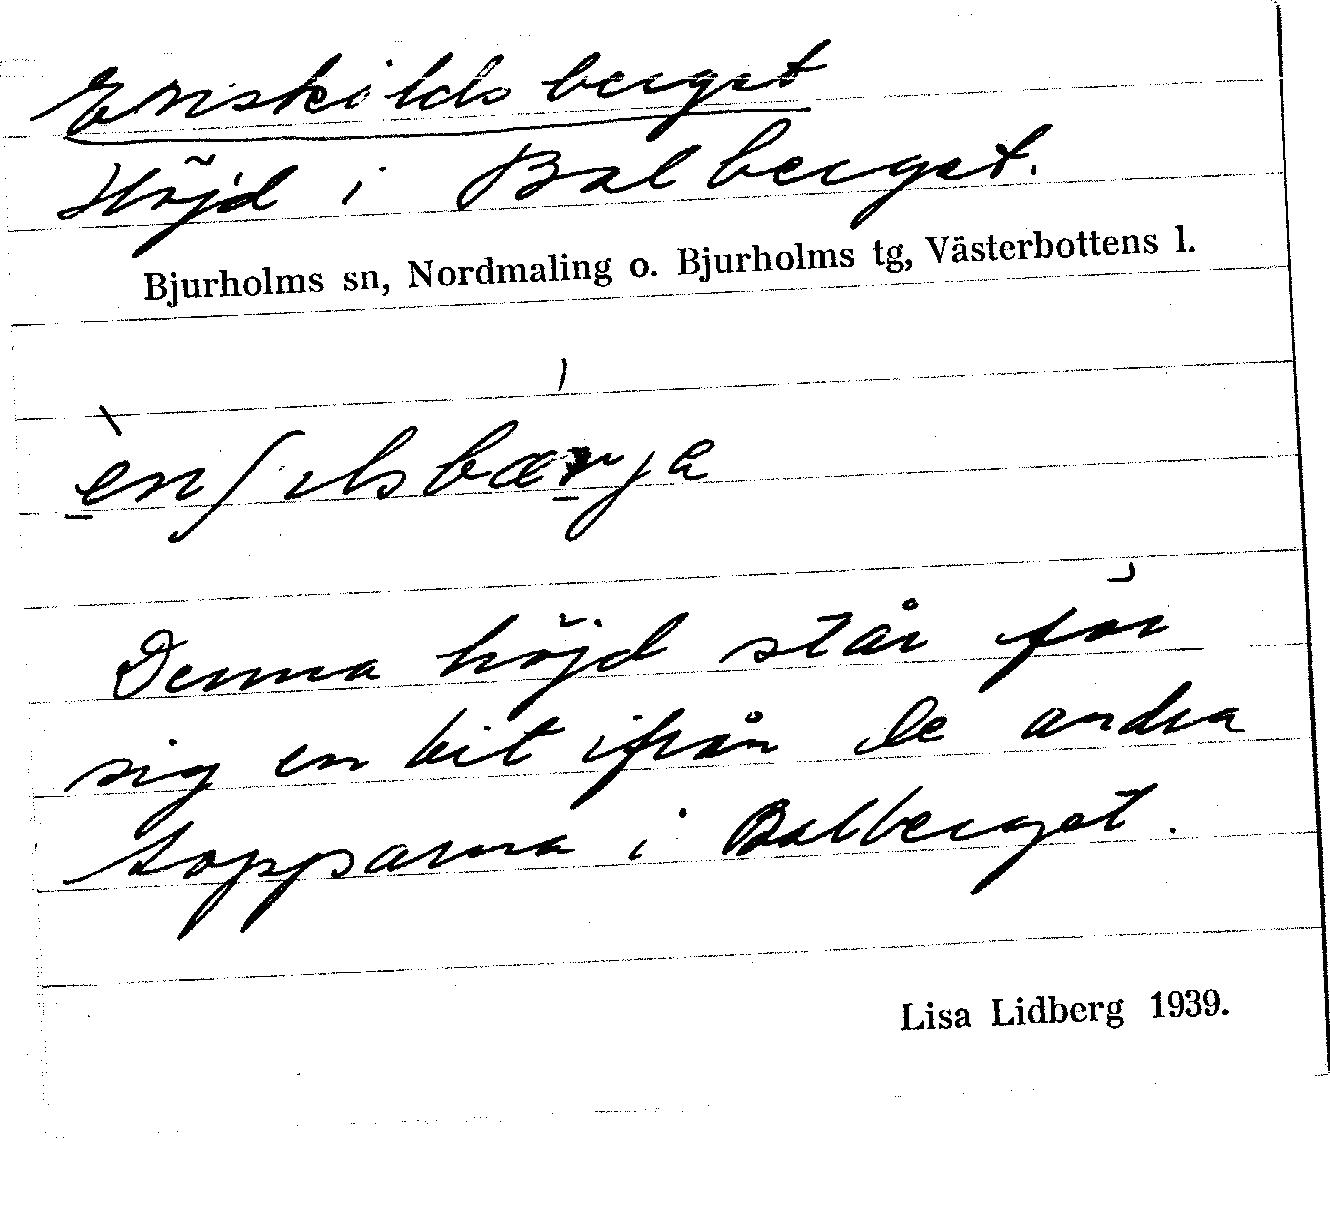 Enskildsberget
Höjd i Balberget.
Bjurholms sn, Nordmaling o. Bjurholms tg, Västerbottens l.
ènʃilsbæŕja
Denna höjd står för
sig en bit ifrån de andra
topparna i Balberget.
Lisa Lidberg 1939.